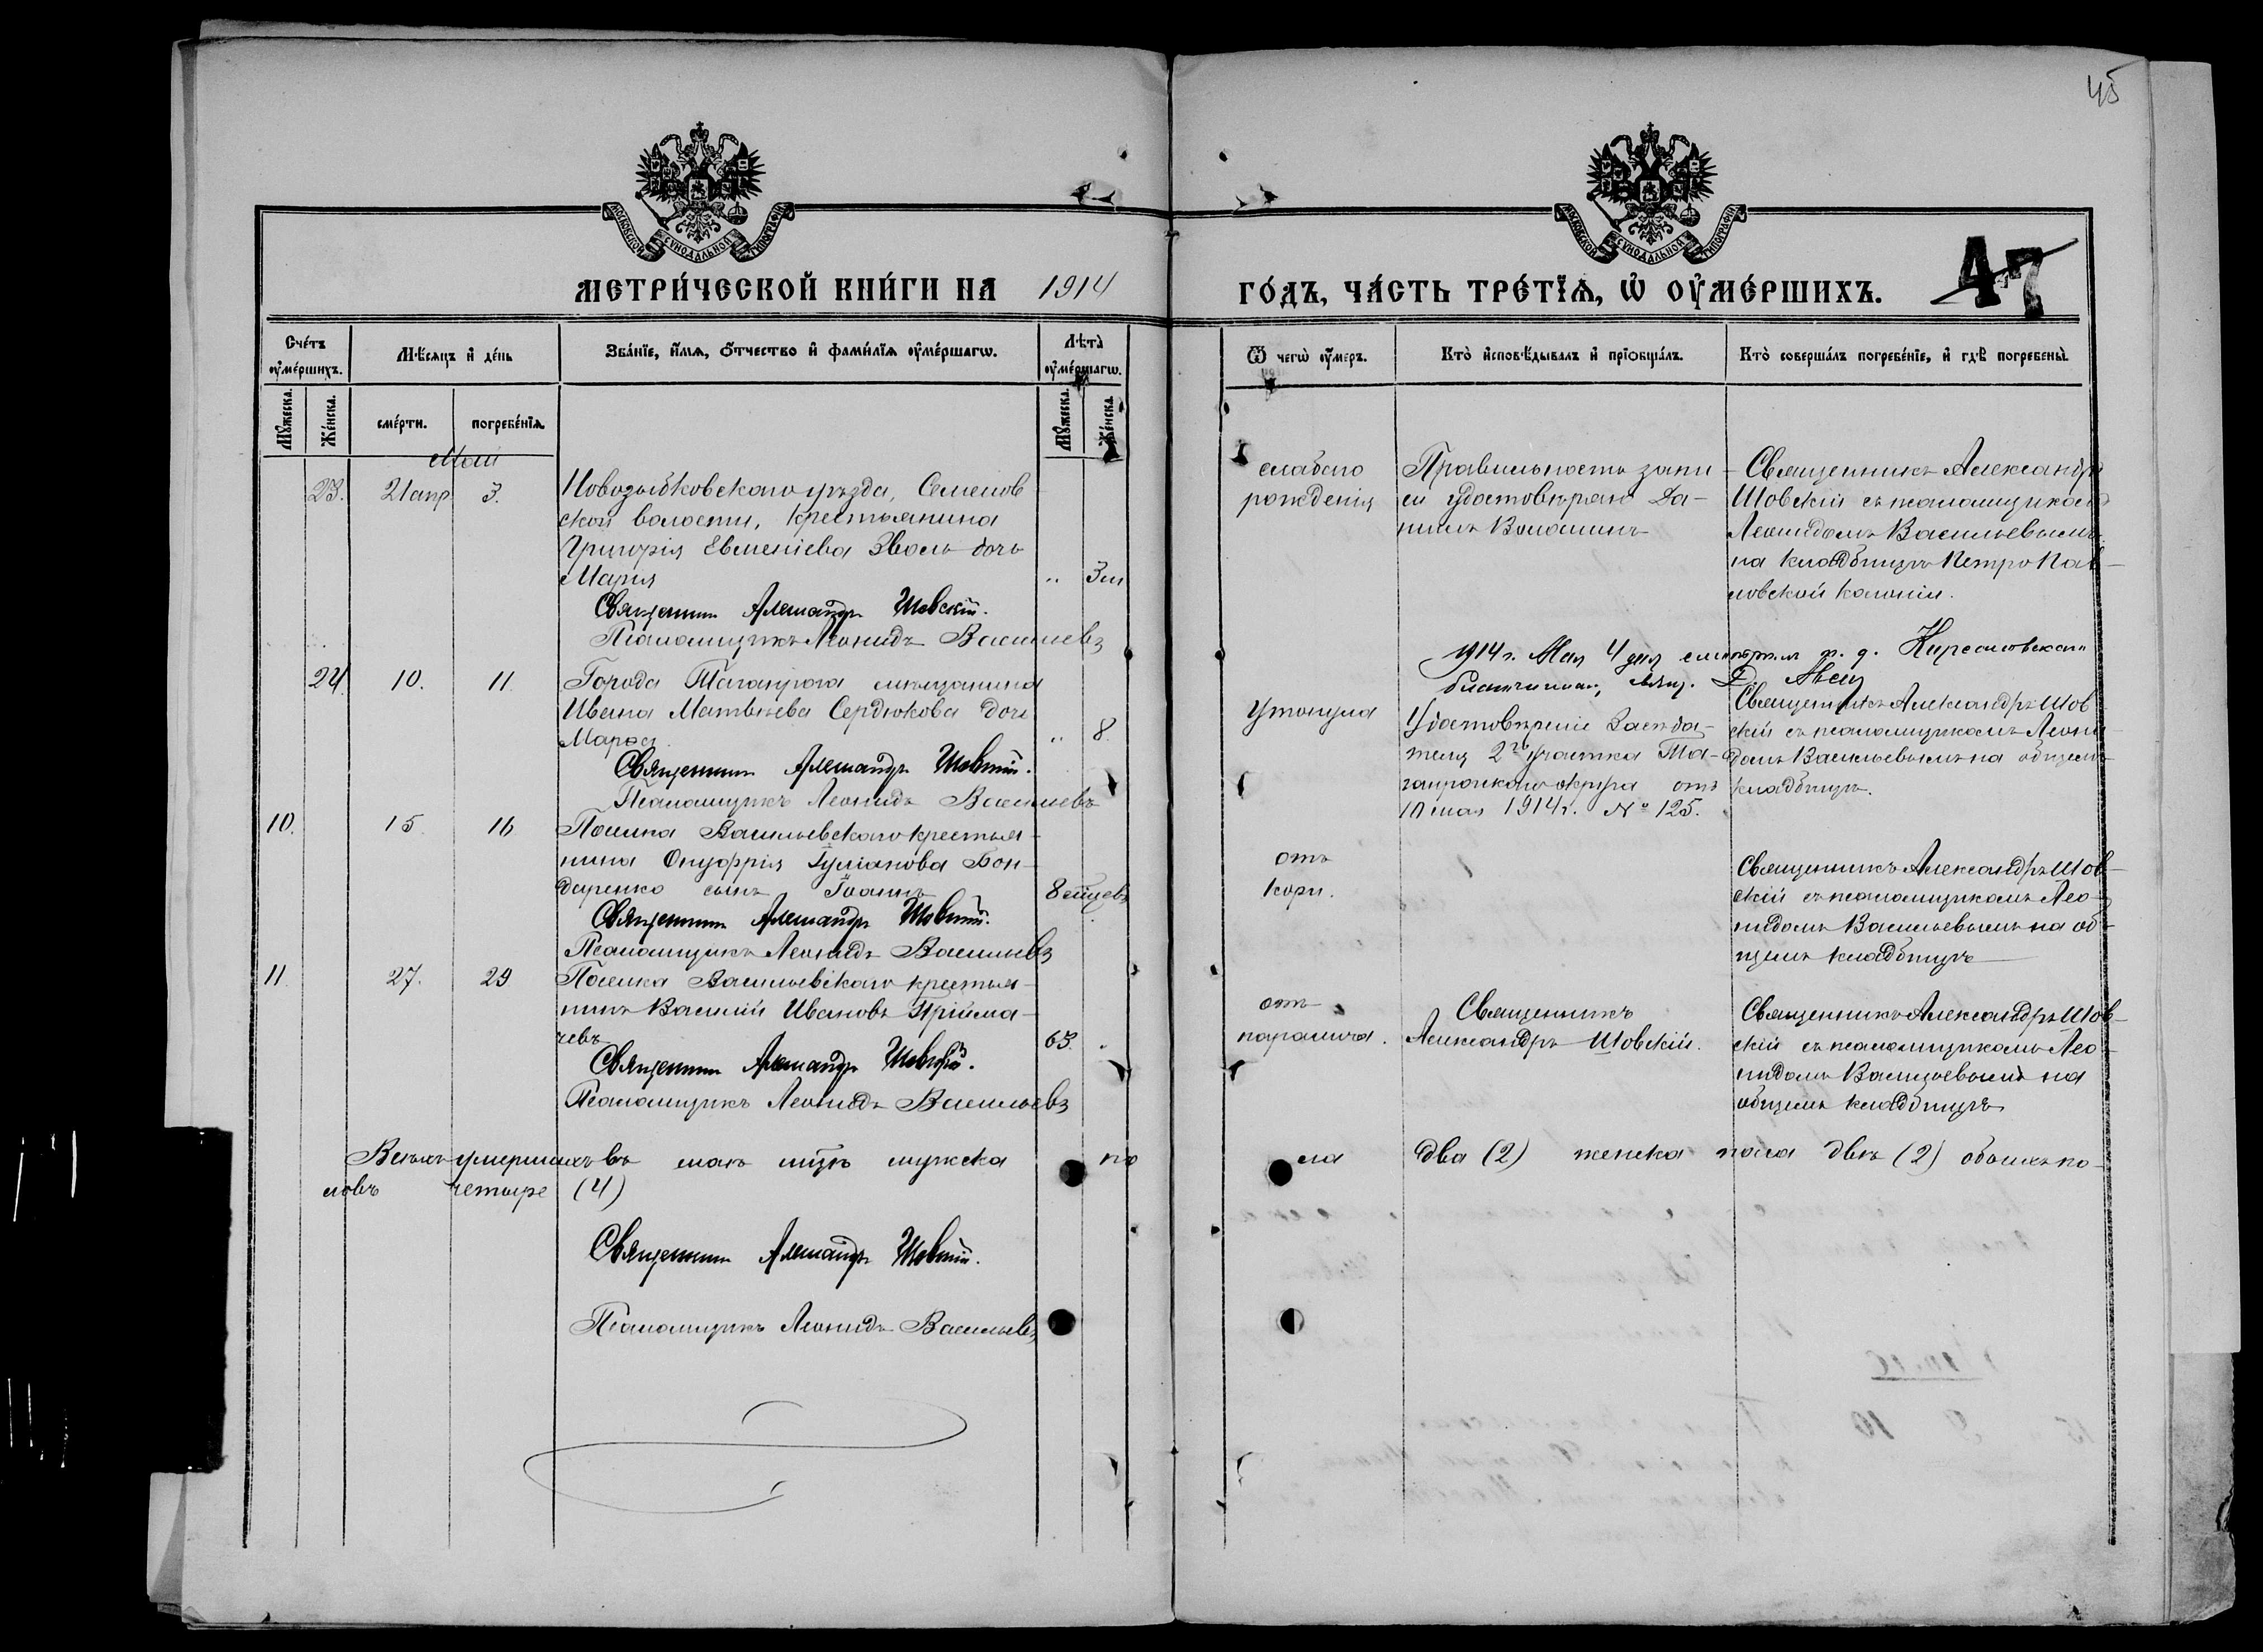 45
МОСКОВСКОЙ СѴНОДАЛЬНОЙ ТИПОГРАФІИ
МОСКОВСКОЙ СѴНОДАЛЬНОЙ ТИПОГРАФІИ
МЕТРИ́ЧЕСКОЙ КНИ́ГИ НА 1914
ГО́ДЪ, ЧА́СТЬ ТРЕ́ТЇѦ, Ѡ҆ ОУ҆МЕ́РШИХЪ.
47
Сче́тъ оу҆ме́ршихъ.
Мѣ́сѧцъ и҆ де́нь
Зва́нїе, и҆́мѧ, ѻ҆́тчество и҆ фами́лїѧ оу҆ме́ршагѡ.
Лѣта̀ оу҆ме́ршагѡ.
Ѿ чегѡ̀ оу҆́меръ.
Кто̀ и҆сповѣ́дывалъ и҆ прїѡбща́лъ.
Кто̀ соверша́лъ погребе́нїе, и҆ гдѣ̀ погребены̀.
Мꙋ́жеска.
Же́нска.
сме́рти.
погребе́нїѧ.
Мꙋ́жеска.
Же́нска.
Май
23. 21 апр. 3.
Новозыбковскаго уѣзда, Семенов
ской волости, крестьянина
Григорія Евменіева Зволь дочь
Марія " 3 м
Священникъ Александръ Шовскій.
Псаломщикъ Леонидъ Васильевъ
слабаго
рожденія
Правильность запи
си удостовѣряю Да-
ніилъ Волошинъ
Священникъ Александръ
Шовскій съ псаломщикомъ
Леонидомъ Васильевымъ
на кладбищѣ Петро Пав-
ловской колоніи.
1914 г. Мая 4 дня
24. 10. 11.
Города Таганрога мѣщанина
Ивана Матвѣева Сердюкова дочь
Марѳа. " 8.
Священникъ Александръ Шовскій.
Псаломщикъ Леонидъ Васильевъ
Утонула
Удостовѣреніе Засѣда-
теля 2го участка Та-
ганрогскаго округа отъ
10 мая 1914 г. № 125.
Священникъ Александръ Шов
скій съ псаломщикомъ Леони
домъ Васильевымъ на общемъ
кладбищѣ.
10. 15. 16
Поселка Васильевскаго крестья-
нина Онуфрія Іуліанова Бон-
даренко сынъ Іоаннъ 8 мѣсяцевъ
Священникъ Александръ Шовскій.
Псаломщикъ Леонидъ Васильевъ
отъ
кори.
Священникъ Александръ Шов-
скій съ псаломщикомъ Лео-
нидомъ Васильевымъ на об-
щемъ кладбищѣ
11. 27. 29
Поселка Васильевскаго крестья-
нинъ Василій Ивановъ Прійма-
чевъ 63.
Священникъ Александръ Шовскій.
Псаломщикъ Леонидъ Васильевъ
отъ
паралича.
Священникъ
Александръ Шовскій.
Священникъ Александръ Шов-
скій съ псаломщикомъ Лео-
нидомъ Васильевымъ на
общемъ кладбищѣ
Всѣхъ умершихъ въ маѣ мцѣ мужска по ла два (2) женска пола двѣ (2) обоихъ по-
ловъ четыре (4)
Священникъ Александръ Шовскій.
Псаломщикъ Леонидъ Васильевъ